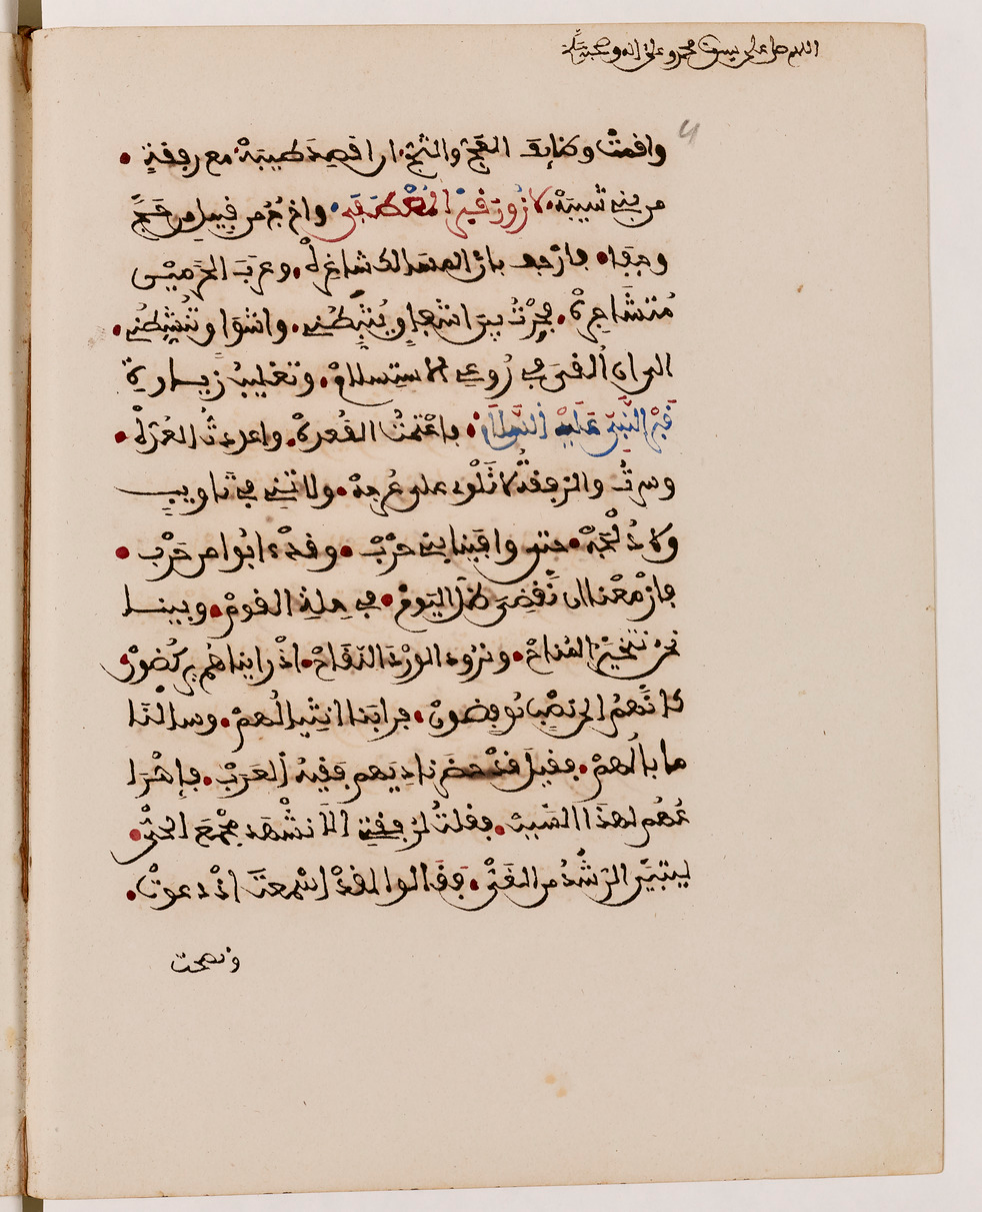 اللهم صل على سيدنا محمد وعلى اله وصحبه
4
واقمت وظايف العج والثج • ان اقصد طيبة • مع رفقة •
من بني شيبة • لازور قبر المصطفى • واخرج من قبيل من حج
وجفا • فارجف بان المسالك شاغرة • وعرب الحرمين
متشاجرة • فحرت بين اشفاق يثبطني • واشواق تنشطني •
الى ان القي في روعي الاستسلام • وتغليب زيارة
قبر النبي عليه السلام • فاعتمت القعدة • واعددت العدة •
وسرت والرفقة لا نلوي على عرجة • ولا نني في تاويب
ولا دلجة • حتى وافينا بني حرب • وقد ءابوا من حرب •
فازمعنا ان نقضي ظل اليوم • في حلة القوم • وبينما
نحن نتخير المناخ • ونرود الورد النقاخ • اذ رايناهم يركضون
كانهم الى نصب يوفضون • فرابنا انثيالهم • وسالنا
ما بالهم • فقيل قد حضر ناديهم فقيه العرب • فاهرا
عهم لهذا السبب • فقلت لرفقتي الا نشهد مجمع الحي •
ليتبين الرشد من الغي • فقالوا لقد اسمعت اذ دعوت •
ونصحت